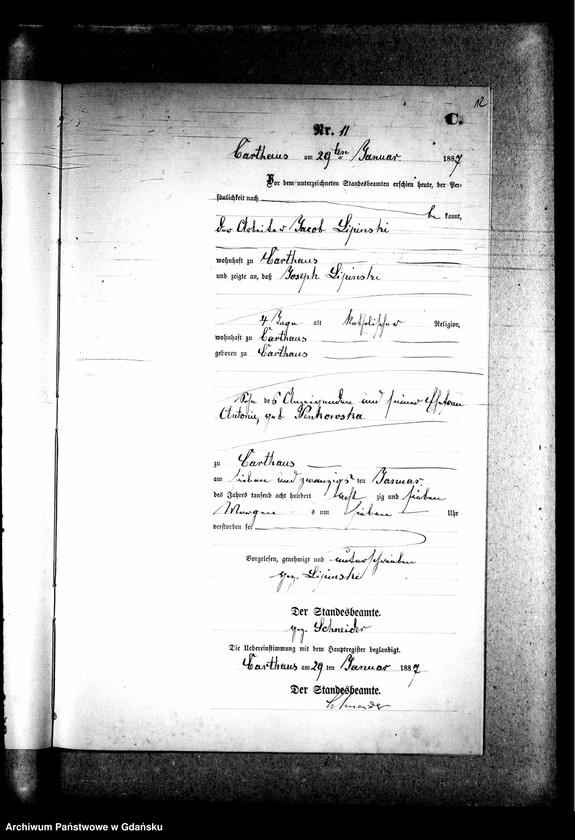 12
C.
Nr. 11
Carthaus am 29ten Januar 1887
Vor dem unterzeichneten Standesbeamten erschien heute, der Per-
sönlichkeit nach
be kannt,
der Arbeiter Jacob Lipinski
wohnhaft zu Carthaus
und zeigte an, daß Joseph Lipinski
4 Tage alt katholischer Religion,
wohnhaft zu Carthaus
geboren zu Carthaus
Sohn des Anzeigenden und seiner Ehefrau
Antonie, geb. Penkowska
zu Carthaus
am sieben und zwanzigs ten Januar
des Jahres tausend acht hundert acht zig und sieben
Morgen s um sieben Uhr
verstorben sei
Vorgelesen, genehmigt und unterschrieben
gez. Lipinski
Der Standesbeamte.
gez. Schneider
Die Uebereinstimmung mit dem Hauptregister beglaubigt.
Carthaus am 29 ten Januar 1887
Der Standesbeamte.
Schneider
Archiwum Państwowe w Gdańsku